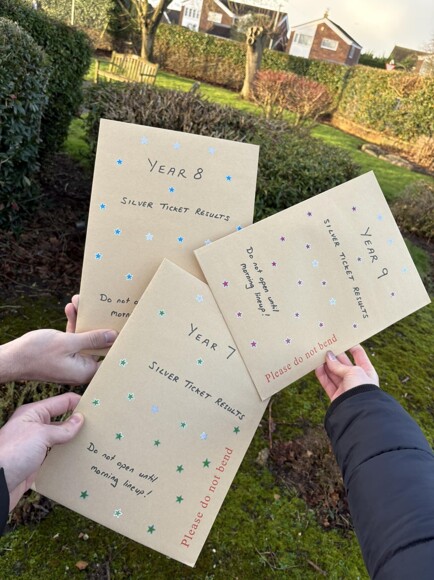 YEAR 8
SILVER TICKET RESULTS
Do not o
morn
YEAR 9
SILVER TICKET RESULTS
Do not open until
morning lineup!
Please do not bend
YEAR 7
SILVER TICKET RESULTS
Do not open until
morning lineup!
Please do not bend